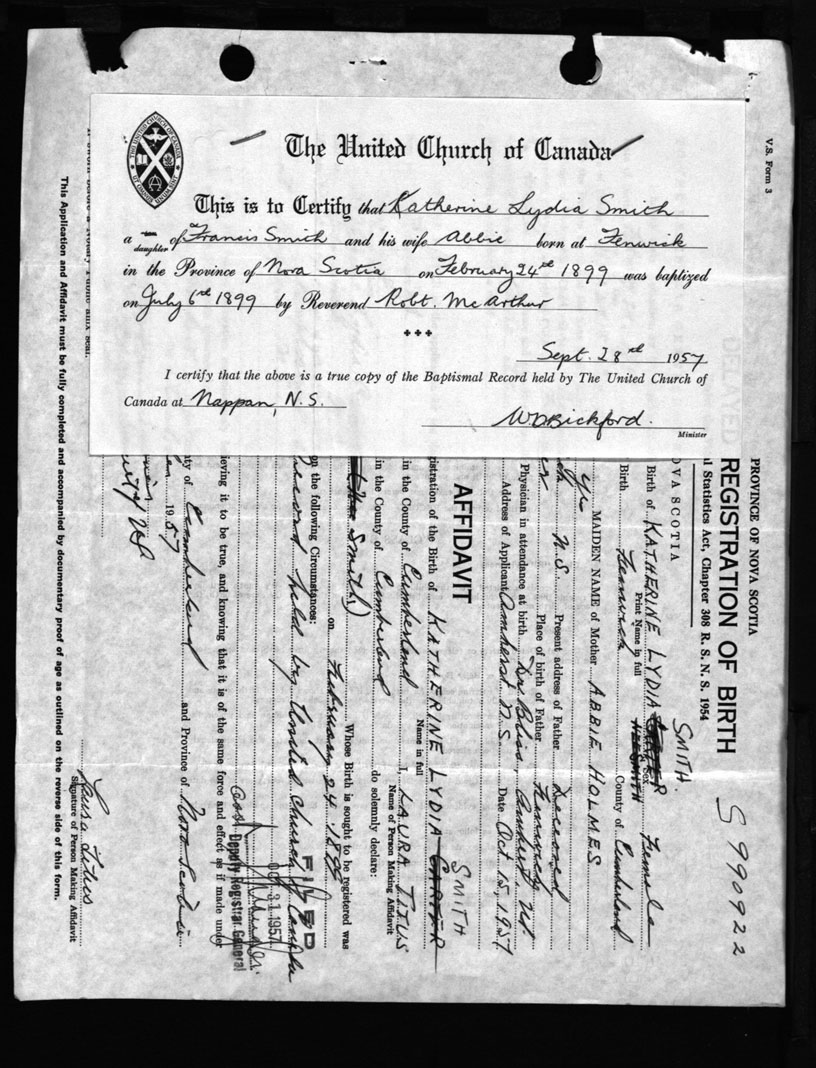 The United Church of Canada
THE UNITED CHURCH OF CANADA
This is to Certify that Katherine Lydia Smith
a daughter of Francis Smith and his wife Abbie born at Fenwick
in the Province of Nova Scotia on February 24th 1899 was baptized
on July 6th 1899 by Reverend Robt. McArthur
Sept. 28th 1957
I certify that the above is a true copy of the Baptismal Record held by The United Church of
Canada at Nappan, N.S.
W D Bickford.
Minister
V.S. Form 3
PROVINCE OF NOVA SCOTIA
REGISTRATION OF BIRTH
l Statistics Act, Chapter 308 R. S. N. S. 1954
S 990922
OVA SCOTIA
SMITH.
Birth of KATHERINE LYDIA CARTER Female
Print Name in full
Sex
NEE SMITH
Birth Fenwick County of Cumberland
MAIDEN NAME of Mother ABBIE HOLMES
N.S. Present address of Father Deceased
Place of birth of Father Fenwick N.S.
Physician in attendance at birth Dr. Bliss, Amherst
Address of Applicant Amherst N.S. Date Oct 15, 1957
AFFIDAVIT
SMITH
istration of the Birth of KATHERINE LYDIA CARTER
Name in full
in the County of Cumberland I, LAURA TITUS
Name of Person Making Affidavit
in the County of Cumberland do solemnly declare:
(Nee Smith) Whose Birth is sought to be registered was
on February 24 1899
on the following Circumstances:
record held by United Church
FILED
OCT 31 1957
Deputy Registrar General
ieving it to be true, and knowing that it is of the same force and effect as if made under
ty of Cumberland and Province of Nova Scotia
1957
Laura Titus
Signature of Person Making Affidavit
This Application and Affidavit must be fully completed and accompanied by documentary proof of age as outlined on the reverse side of this form.